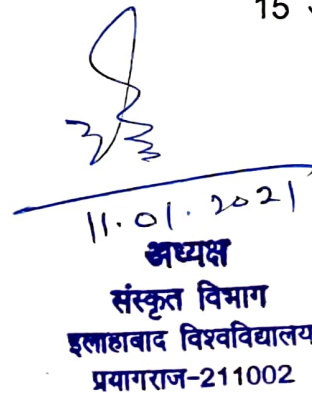 15
11.01.2021
अध्यक्ष
संस्कृत विभाग
इलाहाबाद विश्वविद्यालय
प्रयागराज-211002